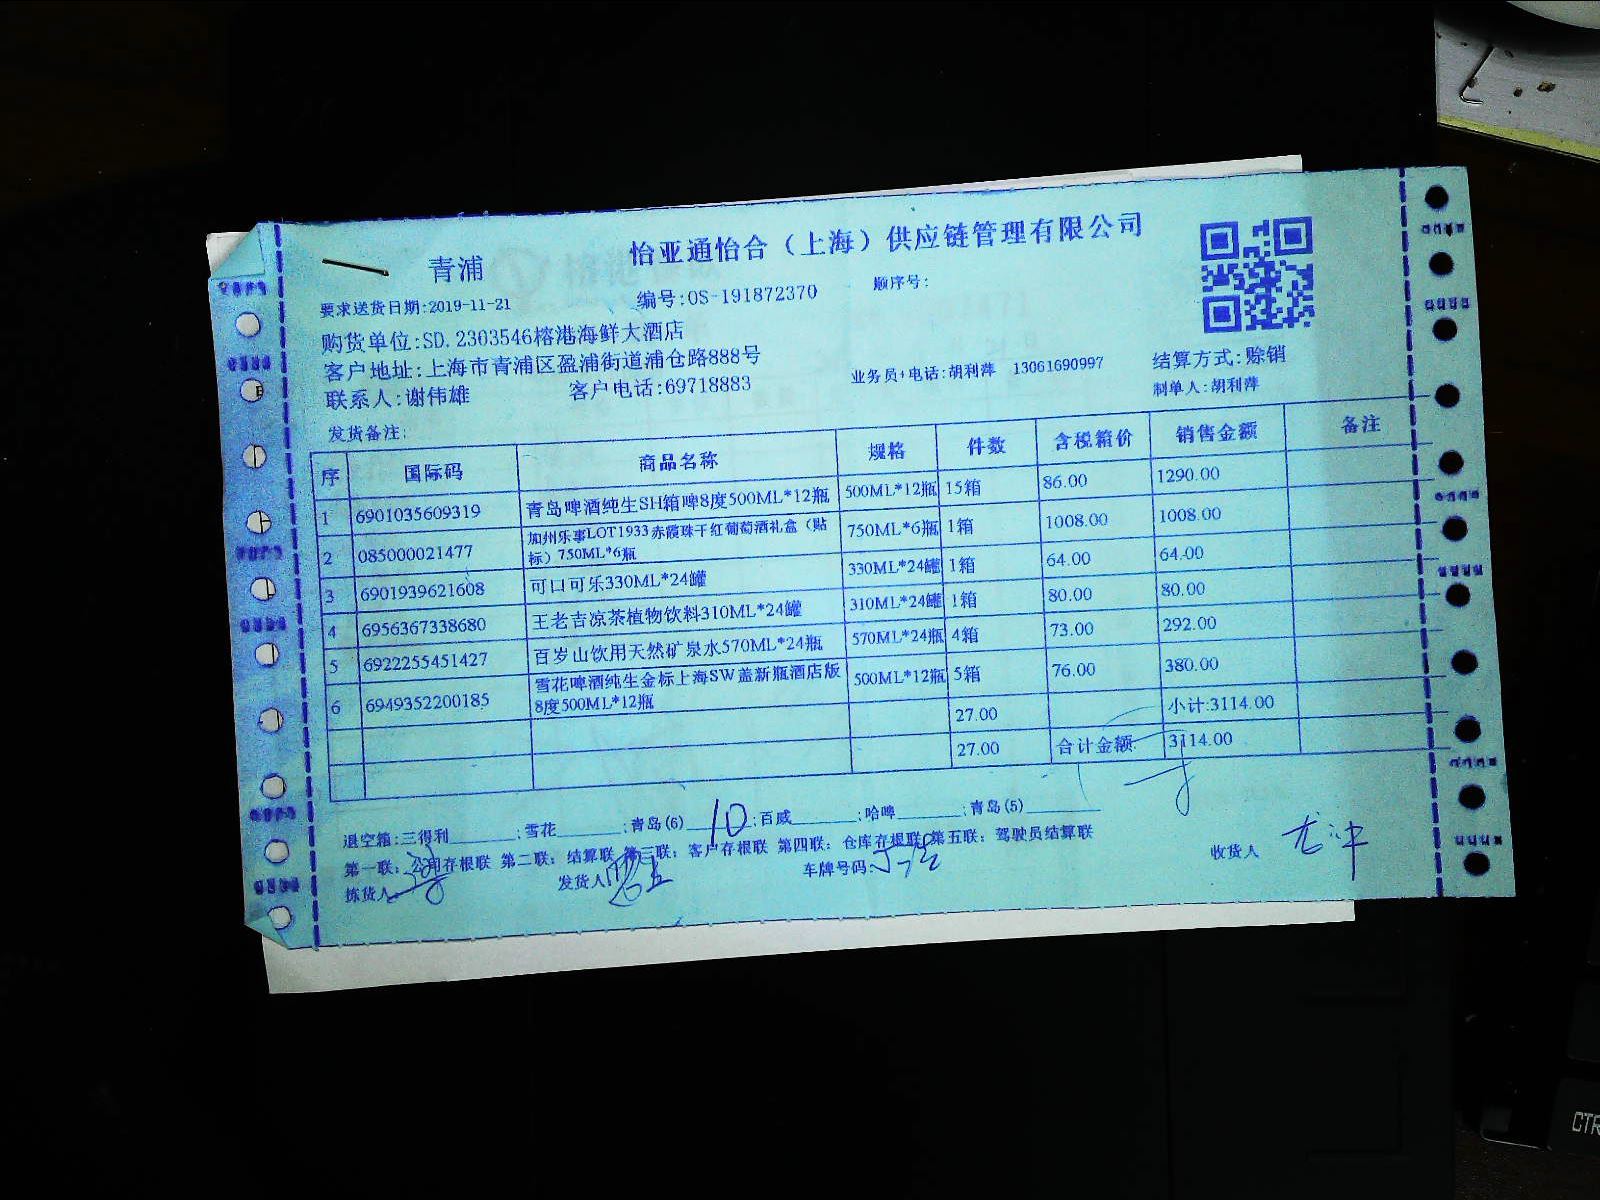 青浦
怡亚通怡合（上海）供应链管理有限公司
要求送货日期:2019-11-21 编号:OS-191872370 顺序号:
购货单位:SD.2303546榕港海鲜大酒店
客户地址:上海市青浦区盈浦街道浦仓路888号 业务员+电话:胡利萍 13061690997 结算方式:赊销
联系人:谢伟雄 客户电话:69718883 制单人:胡利萍
发货备注:
序 国际码 商品名称 规格 件数 含税箱价 销售金额 备注
1 6901035609319 青岛啤酒纯生SH箱啤8度500ML*12瓶 500ML*12瓶 15箱 86.00 1290.00
2 085000021477 加州乐事LOT1933赤霞珠干红葡萄酒礼盒（贴标）750ML*6瓶 750ML*6瓶 1箱 1008.00 1008.00
3 6901939621608 可口可乐330ML*24罐 330ML*24罐 1箱 64.00 64.00
4 6956367338680 王老吉凉茶植物饮料310ML*24罐 310ML*24罐 1箱 80.00 80.00
5 6922255451427 百岁山饮用天然矿泉水570ML*24瓶 570ML*24瓶 4箱 73.00 292.00
6 6949352200185 雪花啤酒纯生金标上海SW盖新瓶酒店版8度500ML*12瓶 500ML*12瓶 5箱 76.00 380.00
27.00 小计:3114.00
27.00 合计金额: 3114.00
退空箱:三得利______;雪花______;青岛(6) 10 ;百威______;哈啤______;青岛(5)______
第一联：公司存根联 第二联：结算联 第三联：客户存根联 第四联：仓库存根联 第五联：驾驶员结算联
拣货人 发货人 车牌号码: 收货人
CTR